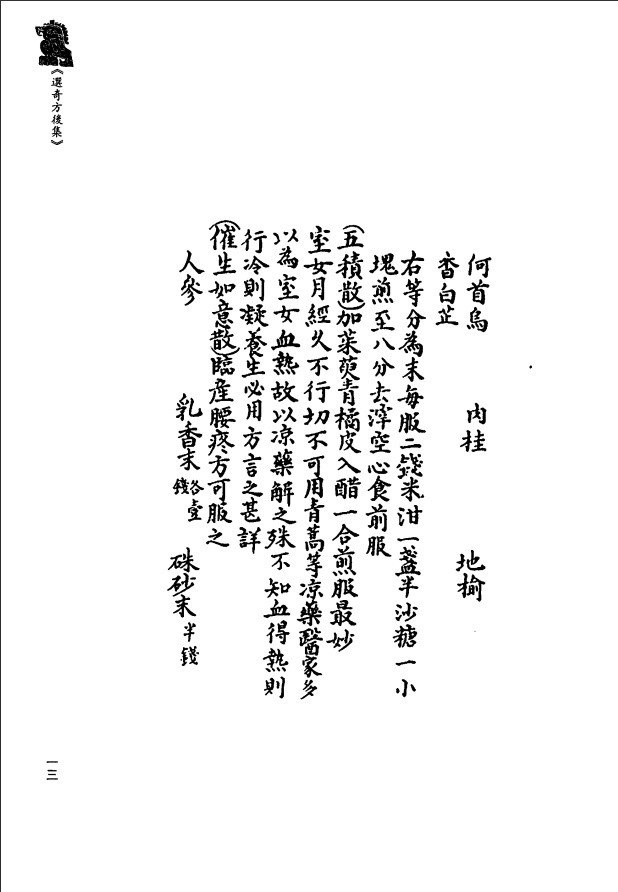 何首烏 肉桂 地榆
香白芷
右等分為末每服二錢米泔一盞半沙糖一小
塊煎至八分去滓空心食前服
(五積散)加茱萸青橘皮入醋一合煎服最妙
室女月經久不行切不可用青蒿等凉藥醫家多
以為室女血熱故以凉藥解之殊不知血得熱則
行冷則凝養生必用方言之甚詳
(催生如意散)臨產腰疼方可服之
人參 乳香末各壹錢 硃砂末半錢
《選奇方後集》
一三